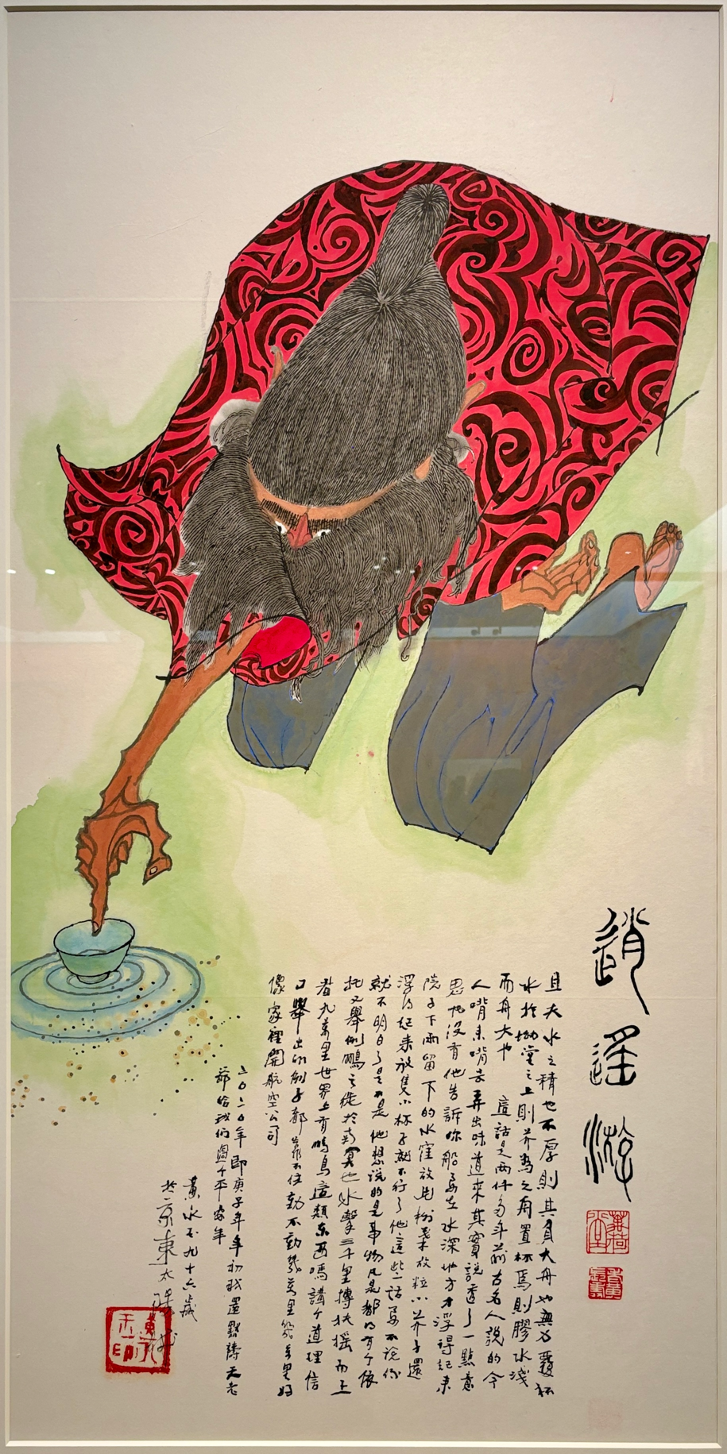 逍遙游
且夫水之積也不厚則其負大舟也無力覆杯
水於坳堂之上則芥為之舟置杯焉則膠水淺
而舟大也 這話是兩仟多年前古名人說的今
人嚼來嚼去弄出味道來其實說透了一點意
思也沒有他告訴你船要在水深地方才浮得起來
院子下雨留下的水窪放片樹葉放粒小芥子還
浮得起來放隻小杯子就不行了他這些話要不說你
就不明白了是不是他想說的是事物凡是都得有个依
托又舉例鵬之徙於南冥也水擊三千里摶扶搖而上
者九萬里世界上有鵬鳥這類东西嗎講个道理信
口舉出的例子都靠不住動不動幾萬里幾千里好
像家裡開航空公司
二〇二〇年即庚子年年初我還 禱天老
爺給我們過个平安年
黃永玉九十六歲
於京東太陽城
黃永玉印